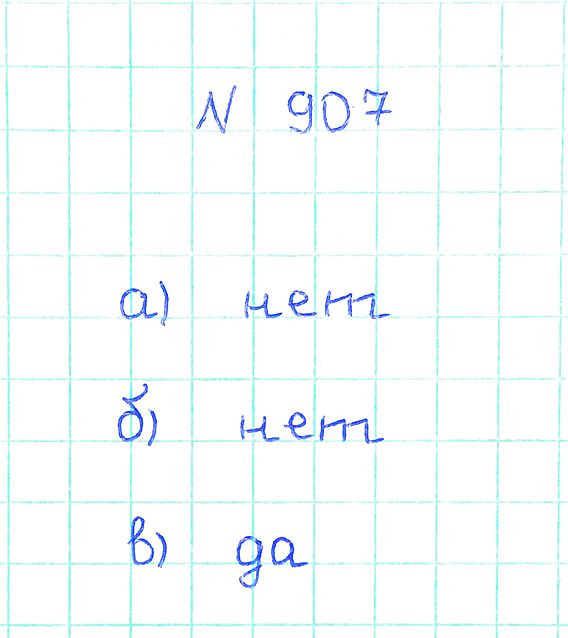 N 907
а) нет
б) нет
в) да